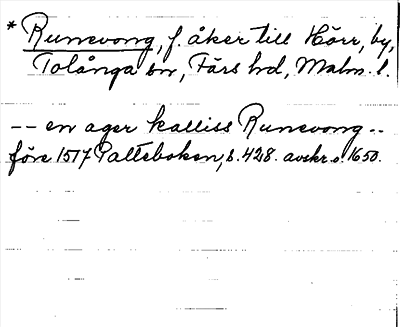 * Runevong, f. åker till Hörr, by,
Tolånga sn, Färs hd, Malm. l.
-- en ager kalliss Runevong --
före 1517 Palteboken, s. 428. avskr. o. 1650.